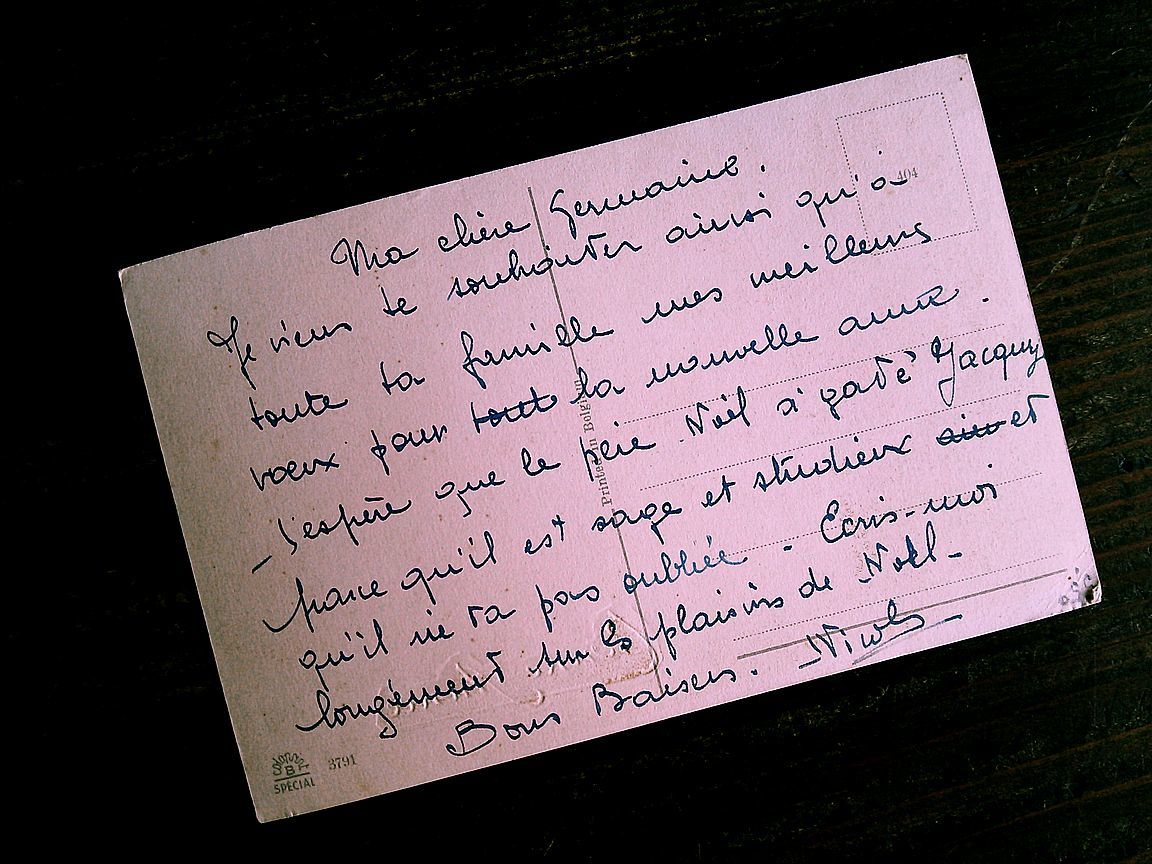 Ma chère Germaine.
Je viens te souhaiter ainsi qu'à
toute ta famille mes meilleurs
voeux pour tout la nouvelle année.
- J'espère que le père Noël a gaté Jacquy
parce qu'il est sage et studieux et
qu'il ne t'a pas oubliée. Ecris-moi
longuement sur les plaisirs de Noël-
Bons Baisers. Nicole
404
Printed in Belgium
SPECIAL
3791